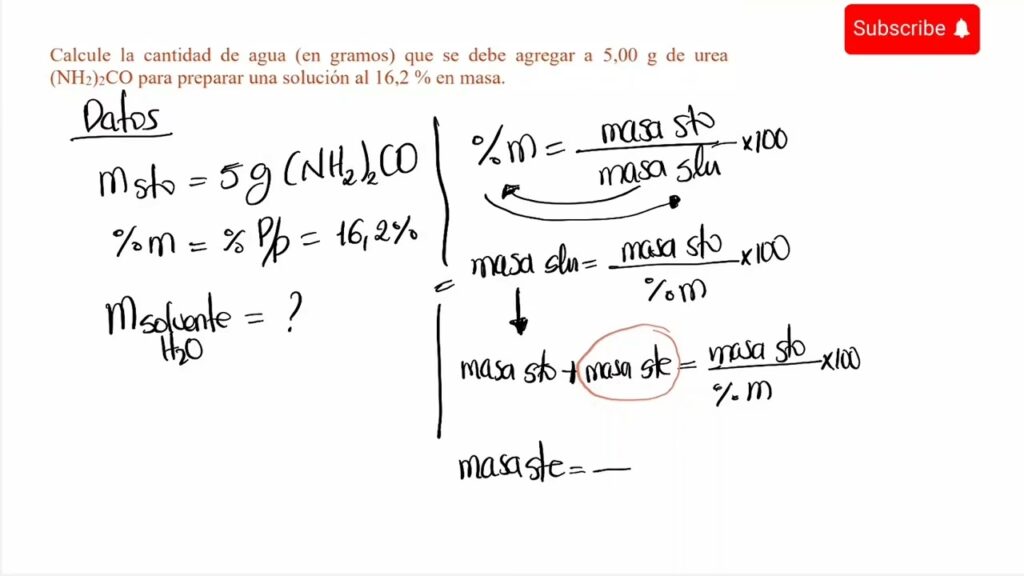 Subscribe
Calcule la cantidad de agua (en gramos) que se debe agregar a 5,00 g de urea
(NH2)2CO para preparar una solución al 16,2 % en masa.
Datos
m sto = 5g (NH2)2CO
%m = % P/p = 16,2%
m solvente = ?
H2O
%m = masa sto / masa sln x100
masa sln = masa sto / %m x100
masa sto + masa ste = masa sto / %m x100
masa ste = —